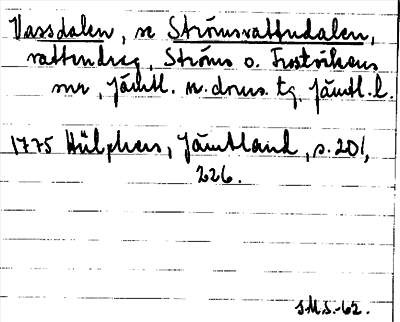 Vassdalen, se Strömsvattudalen,
vattendrag, Ströms o. Frostvikens
snr, Jämtl. n. doms. tg, Jämtl. l.
1775 Hülphers, Jämtland, s. 201,
226.
S.M.S.-62.